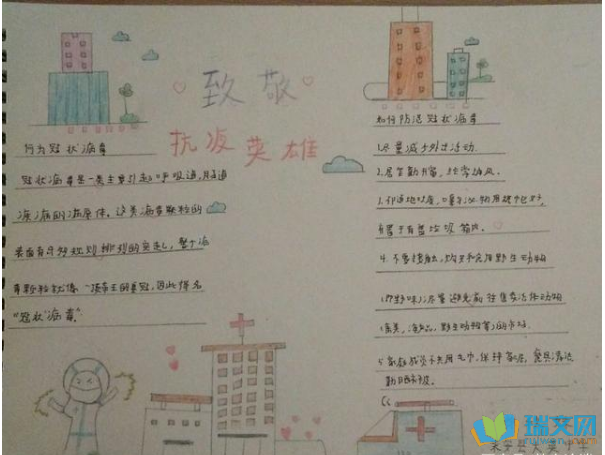 致敬
抗疫英雄
行为冠状病毒
冠状病毒是一类主要引起呼吸道,肠道
疾病的病原体。这类病毒颗粒的
表面有许多规则排列的突起,整个病
毒颗粒就像一顶帝王的皇冠,因此得名
"冠状病毒"
如何防范冠状病毒
1.尽量减少外出活动.
2.居室勤开窗,经常通风.
3.随地吐痰,口鼻分泌物用纸巾包好,
弃置于有盖垃圾箱内.
4.不要接触,购买和食用野生动物
(即野味)尽量避免前往售卖活体动物
(禽类,海产品,野生动物等)的市场.
5.家庭成员不共用毛巾,保持家居,餐具清洁
勤晒衣被.
瑞文网